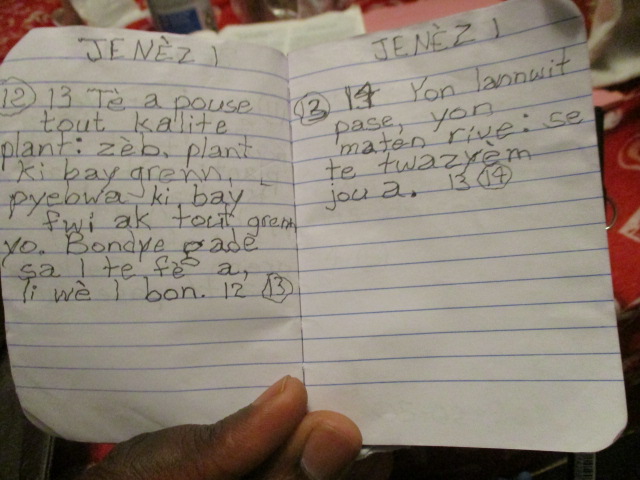 JENÈZ 1
12 13 Tè a pouse
tout kalite
plant: zèb, plant
ki bay grenn,
pyebwa ki bay
fwi ak tout grenn
yo. Bondye gade
sa l te fè a,
li wè l bon. 12 13
JENÈZ 1
13 14 Yon lannwit
pase, yon
maten rive: se
te twazyèm
jou a. 13 14